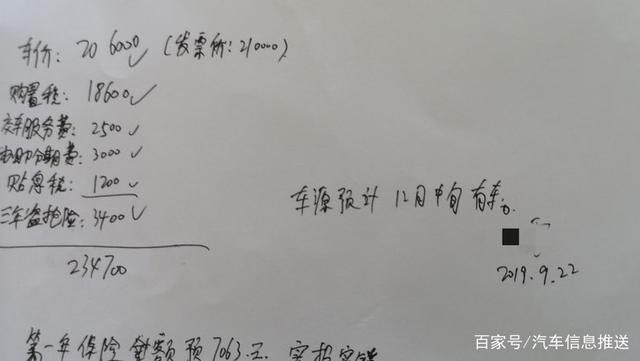 车价: 206000✓ (发票价:210000)
购置税: 18600✓
交车服务费: 2500✓
协助分期费: 3000✓
贴息税: 1200✓
三年盗抢险: 3400✓
234700
车源预计 12月中旬有车。
2019.9.22
第一年保险 7063元
百家号/汽车信息推送